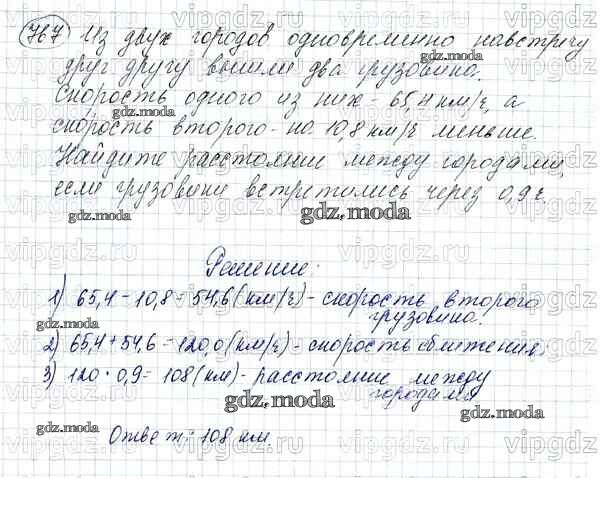 767 Из двух городов одновременно навстречу
друг другу вышли два грузовика.
Скорость одного из них - 65,4 км/ч, а
скорость второго - на 10,8 км/ч меньше.
Найдите расстояние между городами,
если грузовики встретились через 0,9 ч.
Решение:
1) 65,4 - 10,8 = 54,6 (км/ч) - скорость второго
грузовика.
2) 65,4 + 54,6 = 120,0 (км/ч) - скорость сближения
3) 120 · 0,9 = 108 (км) - расстояние между
городами
Ответ: 108 км
gdz.moda
vipgdz.com